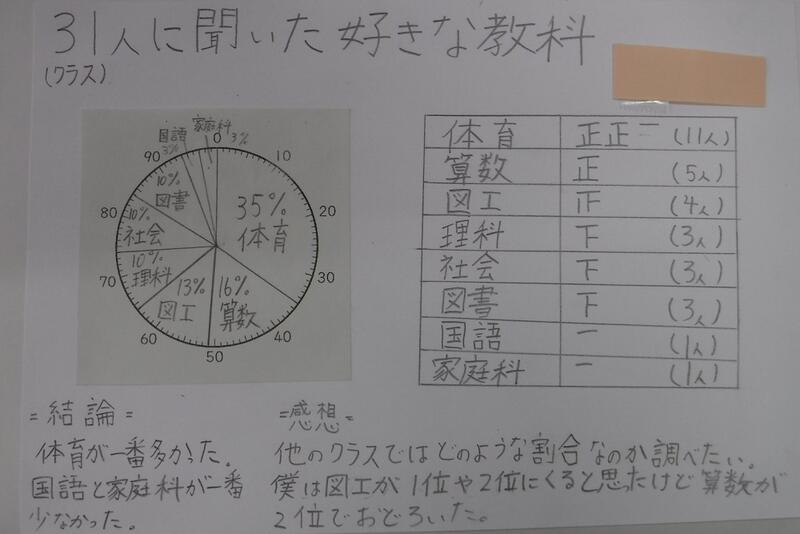 31人に聞いた好きな教科
(クラス)
家庭科
3%
国語
3%
0
10
20
30
40
50
60
70
80
90
35%
体育
16%
算数
13%
図工
10%
理科
10%
社会
10%
図書
体育 正正一 (11人)
算数 正 (5人)
図工 正 (4人)
理科 下 (3人)
社会 下 (3人)
図書 下 (3人)
国語 一 (1人)
家庭科 一 (1人)
=結論=
体育が一番多かった。
国語と家庭科が一番
少なかった。
=感想=
他のクラスではどのような割合なのか調べたい。
僕は図工が1位や2位にくると思ったけど算数が
2位でおどろいた。